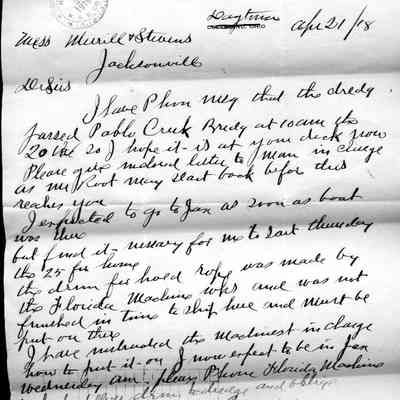 Daytona Apr 21/18
Mess Merrill & Stevens
Jacksonville
Dr Sirs
I have Phon msg that the dredg
passed Pablo Creek Bredg at 10 am the
20 I hope it is at your dock now
Please give inclosed letter to man in charge
as Mr Root may start back befor this
reaches you
I expected to go to Jax as soon as boat
was ther
but find it nessary for me to Start thursday
the 25 for home
the drum for hoed rope was made by
the Florida Machine wks and was not
finished in time to ship here and must be
put on there
I have instructed the Machinest in charge
how to put it on I now expect to be in Jax
wednesday am pleas Phone Florida Machine
drum to dredge and oblige